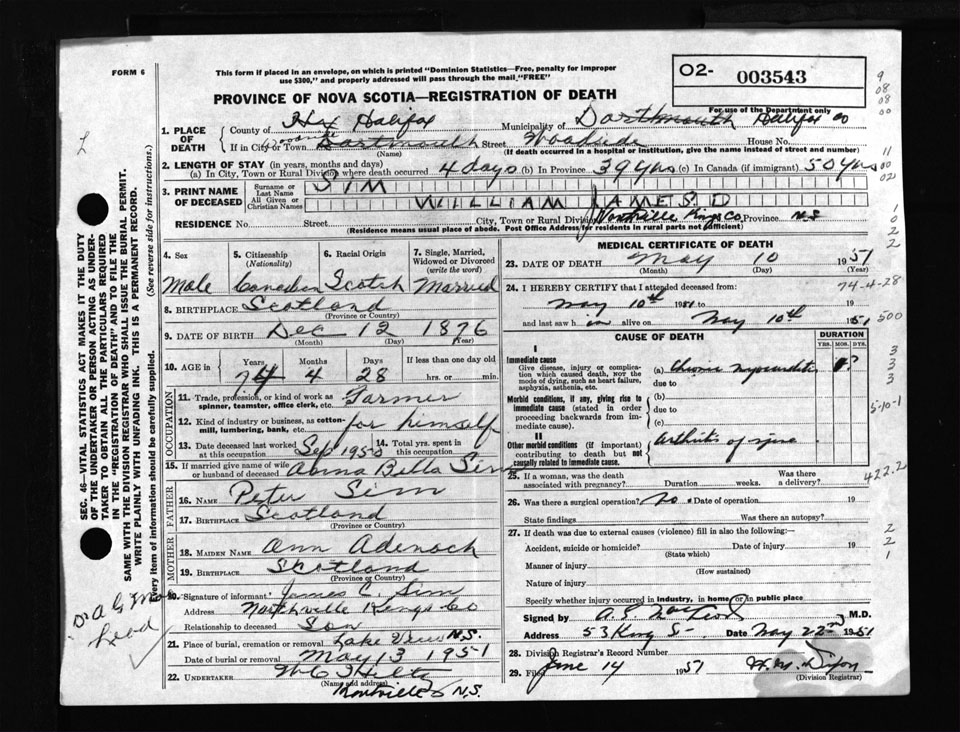 FORM 6
This form if placed in an envelope, on which is printed "Dominion Statistics—Free, penalty for improper
use $300," and properly addressed will pass through the mail "FREE"
O2- 003543
For use of the Department only
PROVINCE OF NOVA SCOTIA—REGISTRATION OF DEATH
1. PLACE OF DEATH
County of Hfx Halifax Municipality of Dartmouth Halifax Co
If in City or Town Woodside Dartmouth Street Woodside House No.
(Name) (If death occurred in a hospital or institution, give the name instead of street and number)
2. LENGTH OF STAY (in years, months and days)
(a) In City, Town or Rural Division where death occurred 4 days (b) In Province 39 yrs (c) In Canada (if immigrant) 50 yrs
3. PRINT NAME OF DECEASED
Surname or Last Name SIM
All Given or Christian Names WILLIAM JAMES D
RESIDENCE No. Street City, Town or Rural Division Northville Kings Co Province N.S
(Residence means usual place of abode. Post Office Address for residents in rural parts not sufficient)
4. Sex
Male
5. Citizenship (Nationality)
Canadian
6. Racial Origin
Scotch
7. Single, Married, Widowed or Divorced (write the word)
Married
8. BIRTHPLACE Scotland
(Province or Country)
9. DATE OF BIRTH Dec 12 1876
(Month) (Day) (Year)
10. AGE in Years Months Days If less than one day old
74 4 28 hrs. or min.
OCCUPATION
11. Trade, profession, or kind of work as spinner, teamster, office clerk, etc. Farmer
12. Kind of industry or business, as cotton-mill, lumbering, bank, etc. for himself
13. Date deceased last worked at this occupation Sep 1950
14. Total yrs. spent in this occupation
15. If married give name of wife or husband of deceased Bella Sim
FATHER
16. NAME Peter Sim
17. BIRTHPLACE Scotland
(Province or Country)
MOTHER
18. MAIDEN NAME Ann Adenoch
19. BIRTHPLACE Scotland
(Province or Country)
20. Signature of informant James C. Sim
Address Northville Kings Co
Relationship to deceased Son
21. Place of burial, cremation or removal Lake View N.S.
Date of burial or removal May 13 1951
22. UNDERTAKER W C Hiltz
(Name and address)
Kentville N.S.
MEDICAL CERTIFICATE OF DEATH
23. DATE OF DEATH May 10 1951
(Month) (Day) (Year)
24. I HEREBY CERTIFY that I attended deceased from:
74-4-28
May 10th 1951 to 19
and last saw h im alive on May 10th 1951
CAUSE OF DEATH
DURATION
YRS. MOS. DYS.
I
Immediate cause
Give disease, injury or complication which caused death, NOT the mode of dying, such as heart failure, asphyxia, asthenia, etc.
(a) Chronic myocarditis ?
due to
Morbid conditions, if any, giving rise to immediate cause (stated in order proceeding backwards from immediate cause).
(b)
due to
(c)
II
Other morbid conditions (if important) contributing to death but not causally related to immediate cause.
arthritis of spine
25. If a woman, was the death associated with pregnancy? Duration weeks. Was there a delivery?
26. Was there a surgical operation? No. Date of operation 19
State findings Was there an autopsy?
27. If death was due to external causes (violence) fill in also the following:—
Accident, suicide or homicide? Date of injury 19
(State which)
Manner of injury
(How sustained)
Nature of injury
Specify whether injury occurred in industry, in home or in public place
Signed by M.D.
Address 53 King St Date May 22nd 1951
28. Division Registrar's Record Number
29. Filed June 14 1951 H. M. Dixon
(Division Registrar)
SEC. 46—VITAL STATISTICS ACT MAKES IT THE DUTY
OF THE UNDERTAKER OR PERSON ACTING AS UNDER-
TAKER TO OBTAIN ALL THE PARTICULARS REQUIRED
IN THE "REGISTRATION OF DEATH" AND TO FILE THE
SAME WITH THE DIVISION REGISTRAR WHO SHALL ISSUE THE BURIAL PERMIT.
WRITE PLAINLY WITH UNFADING INK. THIS IS A PERMANENT RECORD.
Every item of information should be carefully supplied. (See reverse side for instructions.)
9
08
08
00
11
00
02
1
0
2
2
500
3
3
3
5-10-1
422.2
2
2
1